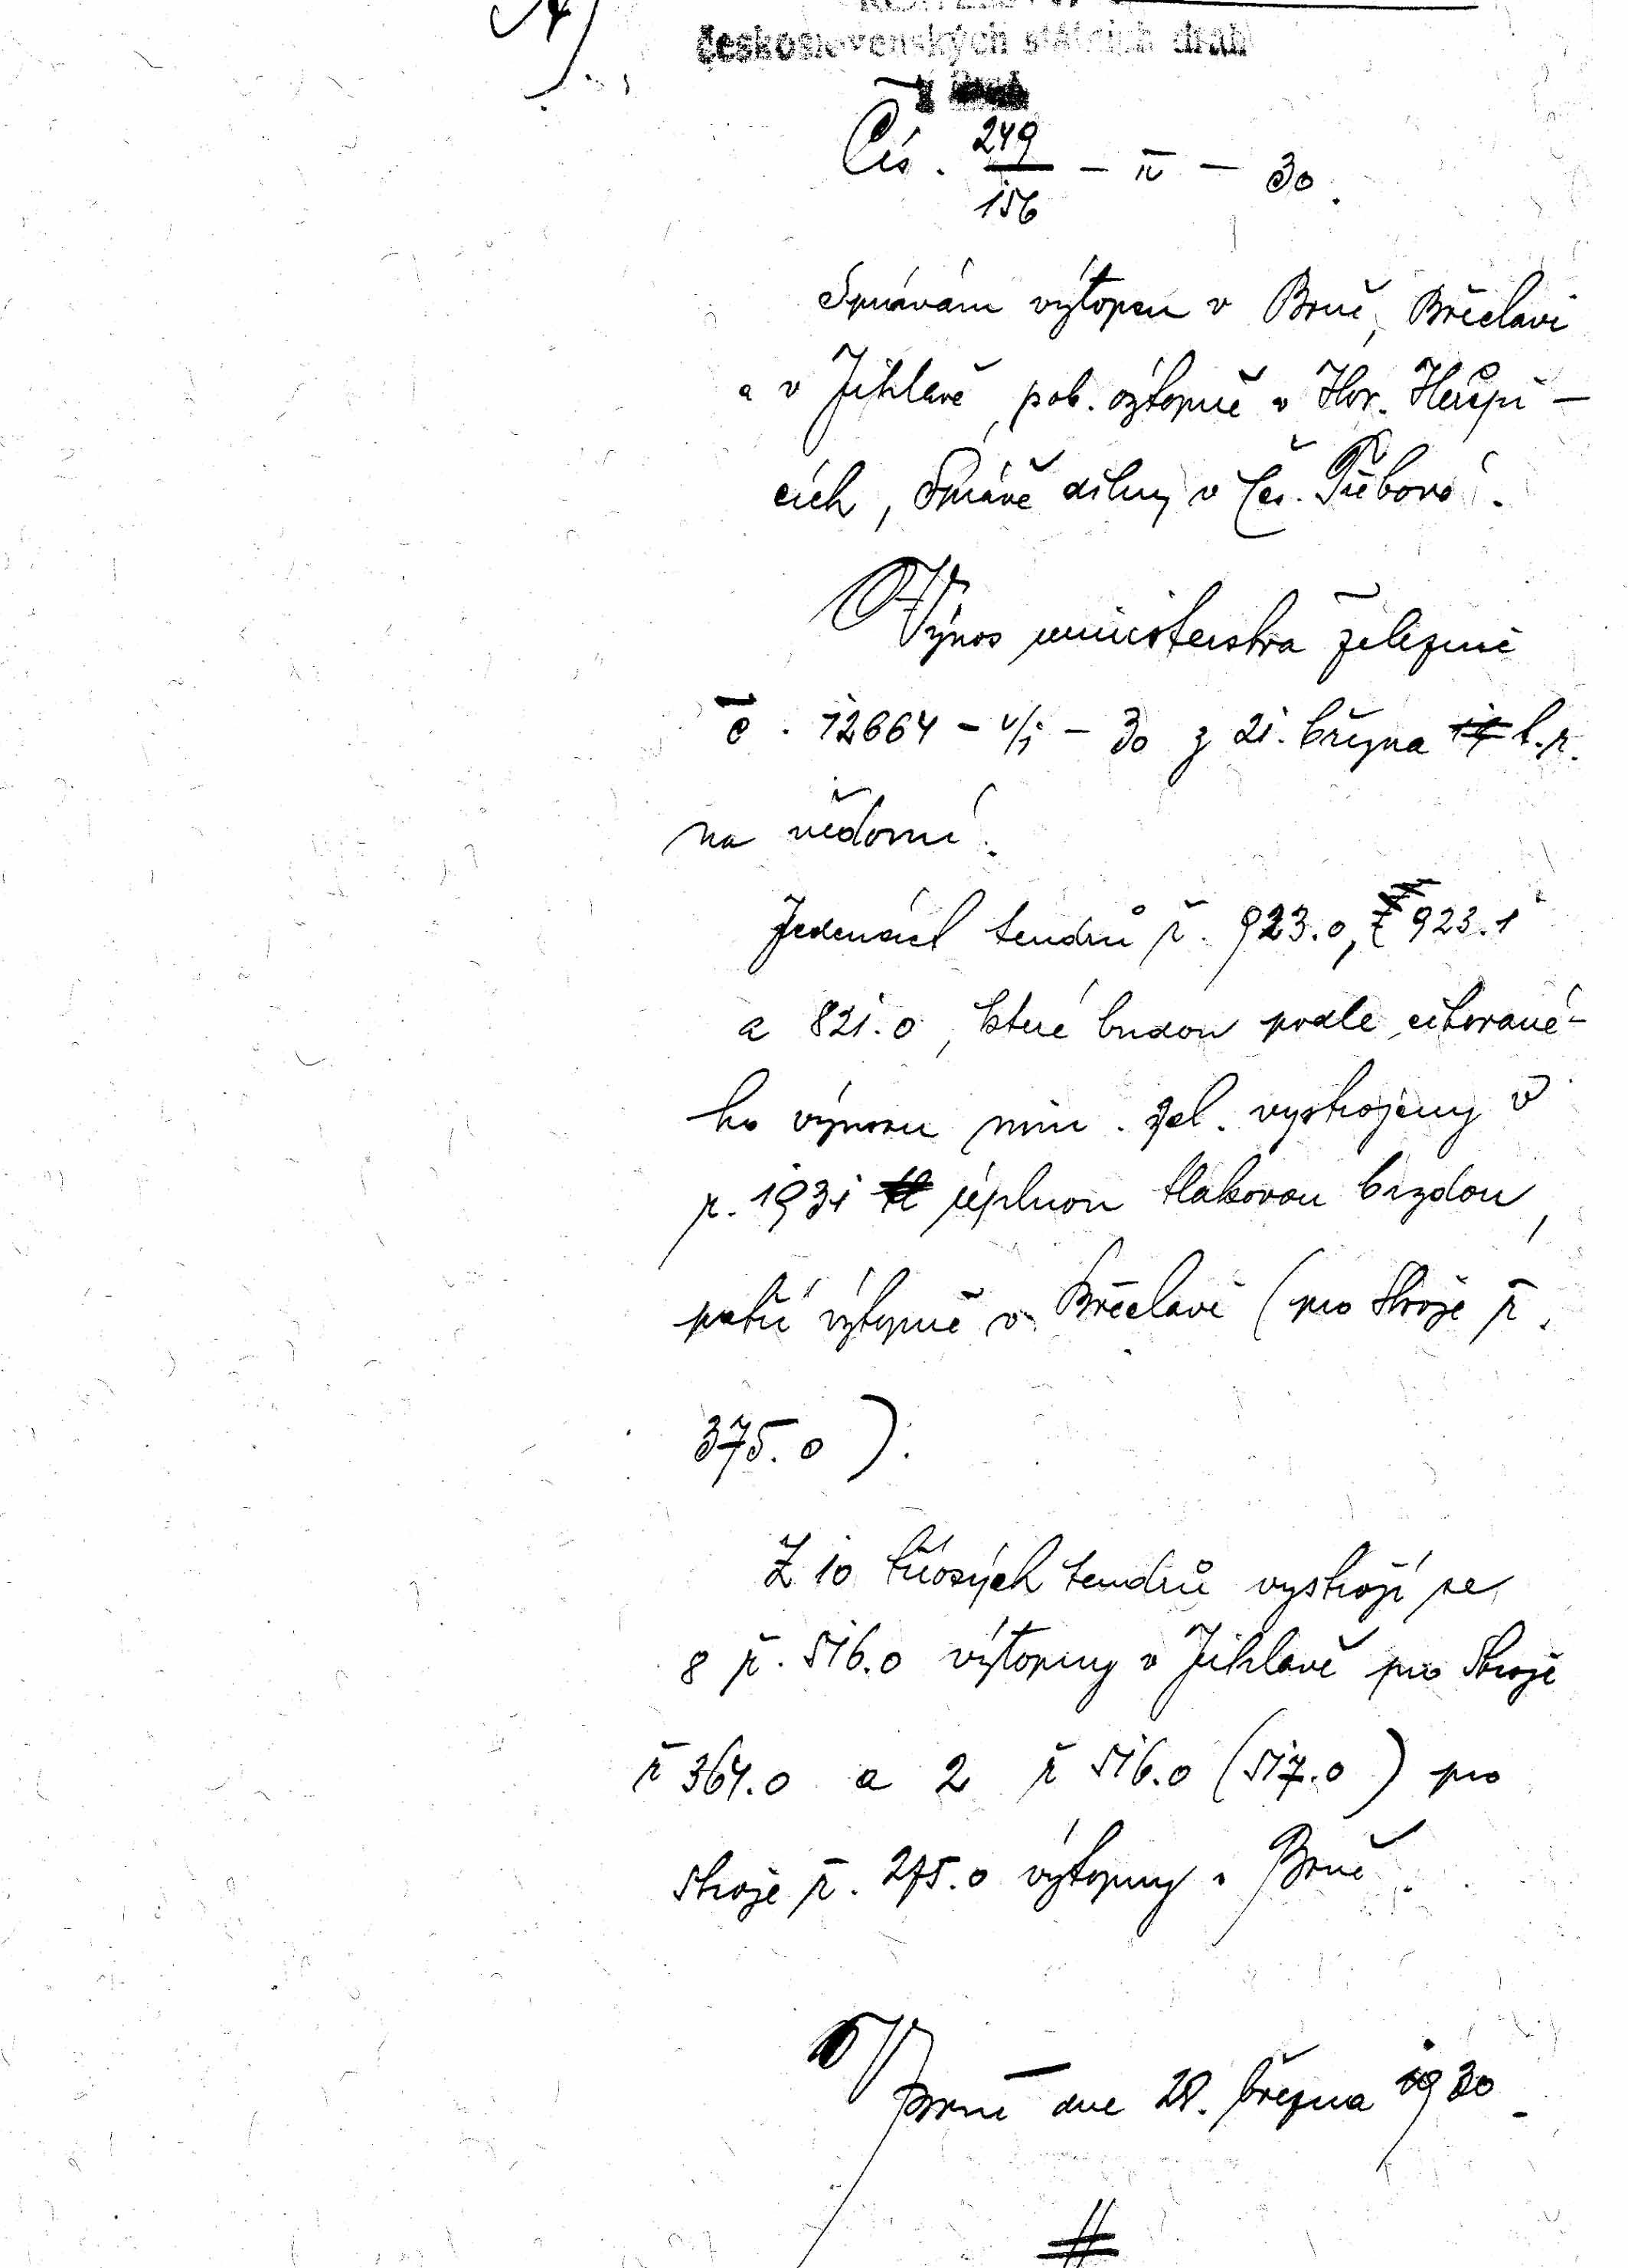 A)
československých státních drah
v Brně
Čís. 249/156 - II - 30.
Správám výtopen v Brně, Břeclavi
a v Jihlavě, pob. výtopně v Hor. Heršpi-
cích, Správě dílny v Čes. Třebové.
Výnos ministerstva železnic
č. 12664 - V/1 - 30 z 21. března t.r.
na vědomí.
Jedenáct tendrů ř. 923.0, 923.1
a 821.0, které budou podle citované-
ho výnosu min. žel. vystrojeny v
r. 1931 úplnou tlakovou brzdou,
patří výtopně v Břeclavi (pro stroje ř.
375.0).
Z 10 tříosých tendrů vystrojí se
8 ř. 516.0 výtopny v Jihlavě pro stroje
ř 364.0 a 2 ř 516.0 (517.0) pro
stroje ř. 275.0 výtopny v Brně.
V Brně dne 28. března 1930.